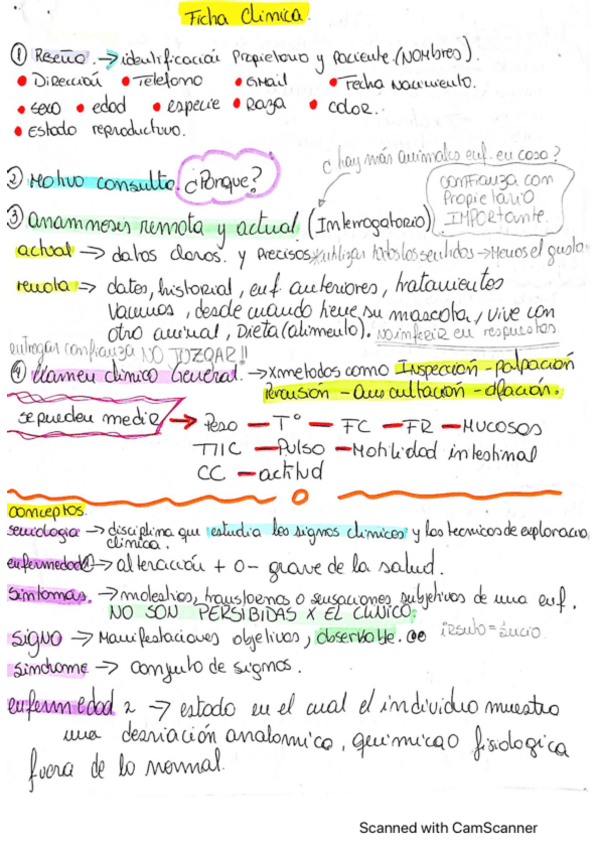 Ficha Clinica.
① Reseña. → identificación Propietario y Paciente. (Nombres).
• Dirección • Telefono • Gmail • Fecha Nacimiento.
• sexo • edad • especie • Raza • color.
• Estado reproductivo.
¿hay más animales enf. en casa?
② Motivo consulta. ¿Porque?
confianza con
Propietario
IMPORtante.
③ anamnesis remota y actual (Interrogatorio)
actual → datos claros. y Precisos * utilizar todos los sentidos → Menos el gusto
remota → datos, historial, enf. anteriores, tratamientos
Vacunas, desde cuando tiene su mascota, vive con
otro animal, Dieta (alimento). No inferir en respuestas.
entregar confianza NO JUZGAR!!
④ Examen clinico General. → X metodos como Inspección - palpación
Percusión - auscultación - olfación.
se pueden medir → Peso — T° — FC — FR — Mucosas
TLLC — Pulso — Motilidad intestinal
CC — actitud
conceptos.
semiologia → disciplina que estudia los signos clinicos y las tecnicas de exploracio
clinica.
enfermedad① → alteración + o - grave de la salud.
Sintomas. → molestias, transtornos o sensaciones subjetivas de una enf.
NO SON PERSIBIDAS X EL CLINICO.
Signo → Manifestaciones objetivas, observable.
Sindrome → conjunto de signos.
enfermedad 2 → estado en el cual el individuo muestra
una desviación anatomica, quimica o fisiologica
fuera de lo normal.
Scanned with CamScanner